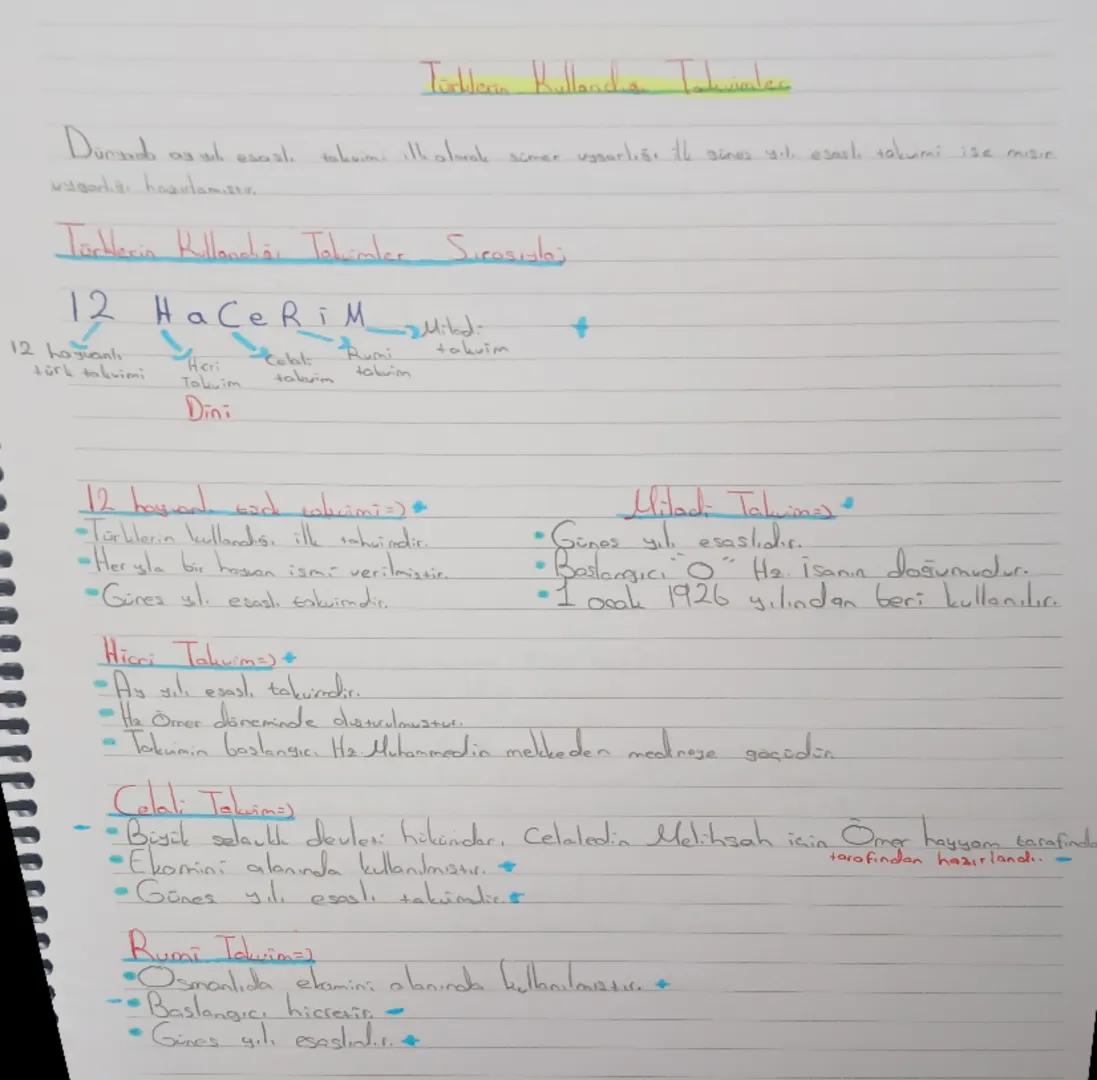 Türklerin Kullandığı Takvimler
Dünyada ay yılı esaslı takvimi ilk olarak sümer uygarlığı ilk güneş yılı esaslı takvimi ise mısır
uygarlığı hazırlamıştır.
Türklerin Kullandığı Takvimler Sırasıyla;
12 HaCeRiM
12 hayvanlı türk takvimi
Hicri Takvim
Dini
Celali takvim
Rumi takvim
Miladi takvim
12 hayvanlı türk takvimi =>
• Türklerin kullandığı ilk takvimdir.
• Her yıla bir hayvan ismi verilmiştir.
• Güneş yılı esaslı takvimdir.
Miladi Takvim =>
• Güneş yılı esaslıdır.
• Başlangıcı "0" Hz. İsanın doğumudur.
• 1 ocak 1926 yılından beri kullanılır.
Hicri Takvim =>
• Ay yılı esaslı takvimdir.
• Hz Ömer döneminde oluşturulmuştur.
• Takvimin başlangıcı Hz. Muhammedin mekkeden medineye göçüdür
Celali Takvim =>
• Büyük selçuklu devleti hükümdarı Celaledin Melihşah için Ömer hayyam tarafında
tarafından hazırlandı.
• Ekomini alanında kullanılmıştır.
• Güneş yılı esaslı takvimdir.
Rumi Takvim =>
• Osmanlıda ekomini alanında kullanılmıştır.
• Başlangıcı hicrettir.
• Güneş yılı esaslıdır.